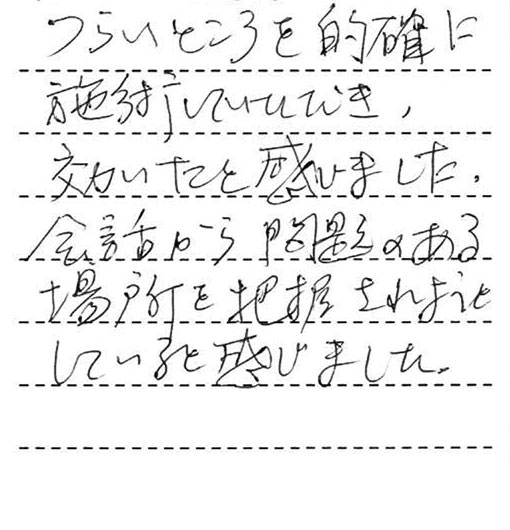 つらいところを的確に
施術していただき、
効いたと感じました。
会話から問題のある
場所を把握されようと
していると感じました。